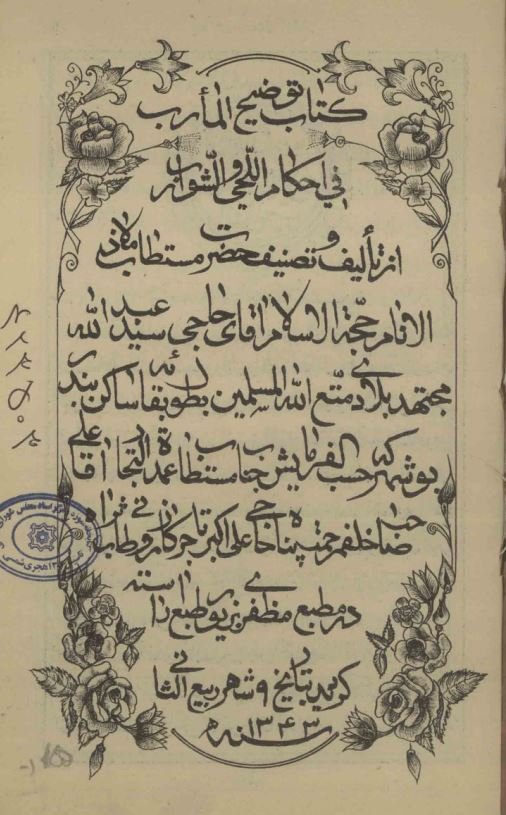 کتاب توضیح المأرب
فی احکام اللحی و الشوارب
از تألیف و تصنیف حضرت مستطاب ملاذ
الانام حجّة الاسلام آقای حاجی سید عبد الله
مجتهد بلادی متّع الله المسلمین بطول بقائه ساکن بندر
بوشهر که حسب الفرمایش جناب مستطاب عمدة التجار آقا علی
خلف مرحمت پناه حاجی علی اکبر تاجر کازرونی
در مطبع مظفری بزیور طبع آراسته
گردید بتاریخ ۹ شهر ربیع الثانی
سنه ۱۳۴۳